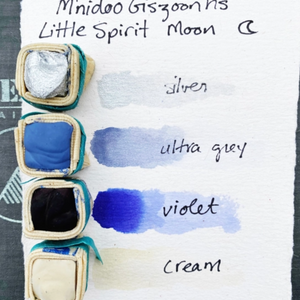 Mnidoo Giszoonhs
Little Spirit Moon
silver
ultra grey
violet
cream